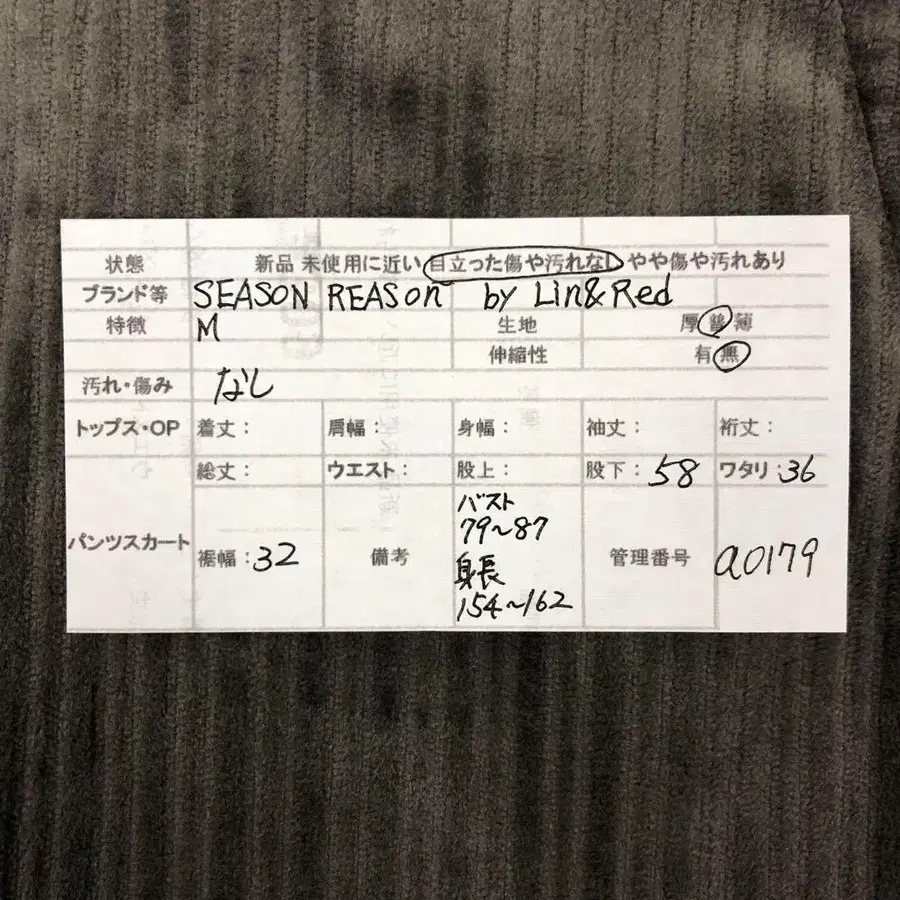 状態 新品 未使用に近い 目立った傷や汚れなし やや傷や汚れあり
ブランド等 SEASON REASON by Lin&Red
特徴 M 生地 厚 普 薄
伸縮性 有 無
汚れ・傷み なし
トップス・OP 着丈: 肩幅: 身幅: 袖丈: 裄丈:
パンツスカート 総丈: ウエスト: 股上: 股下: 58 ワタリ: 36
裾幅: 32 備考 バスト 79~87 身長 154~162 管理番号 a0179